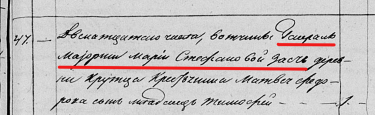 47. — Двенатцатаго числа, вотчины Генералъ
Маіорши Марьи Стефановой Засъ дерев
ни Крутца Крестьянина Матвея Федо
рова сынъ младенецъ Тимофей — 1.